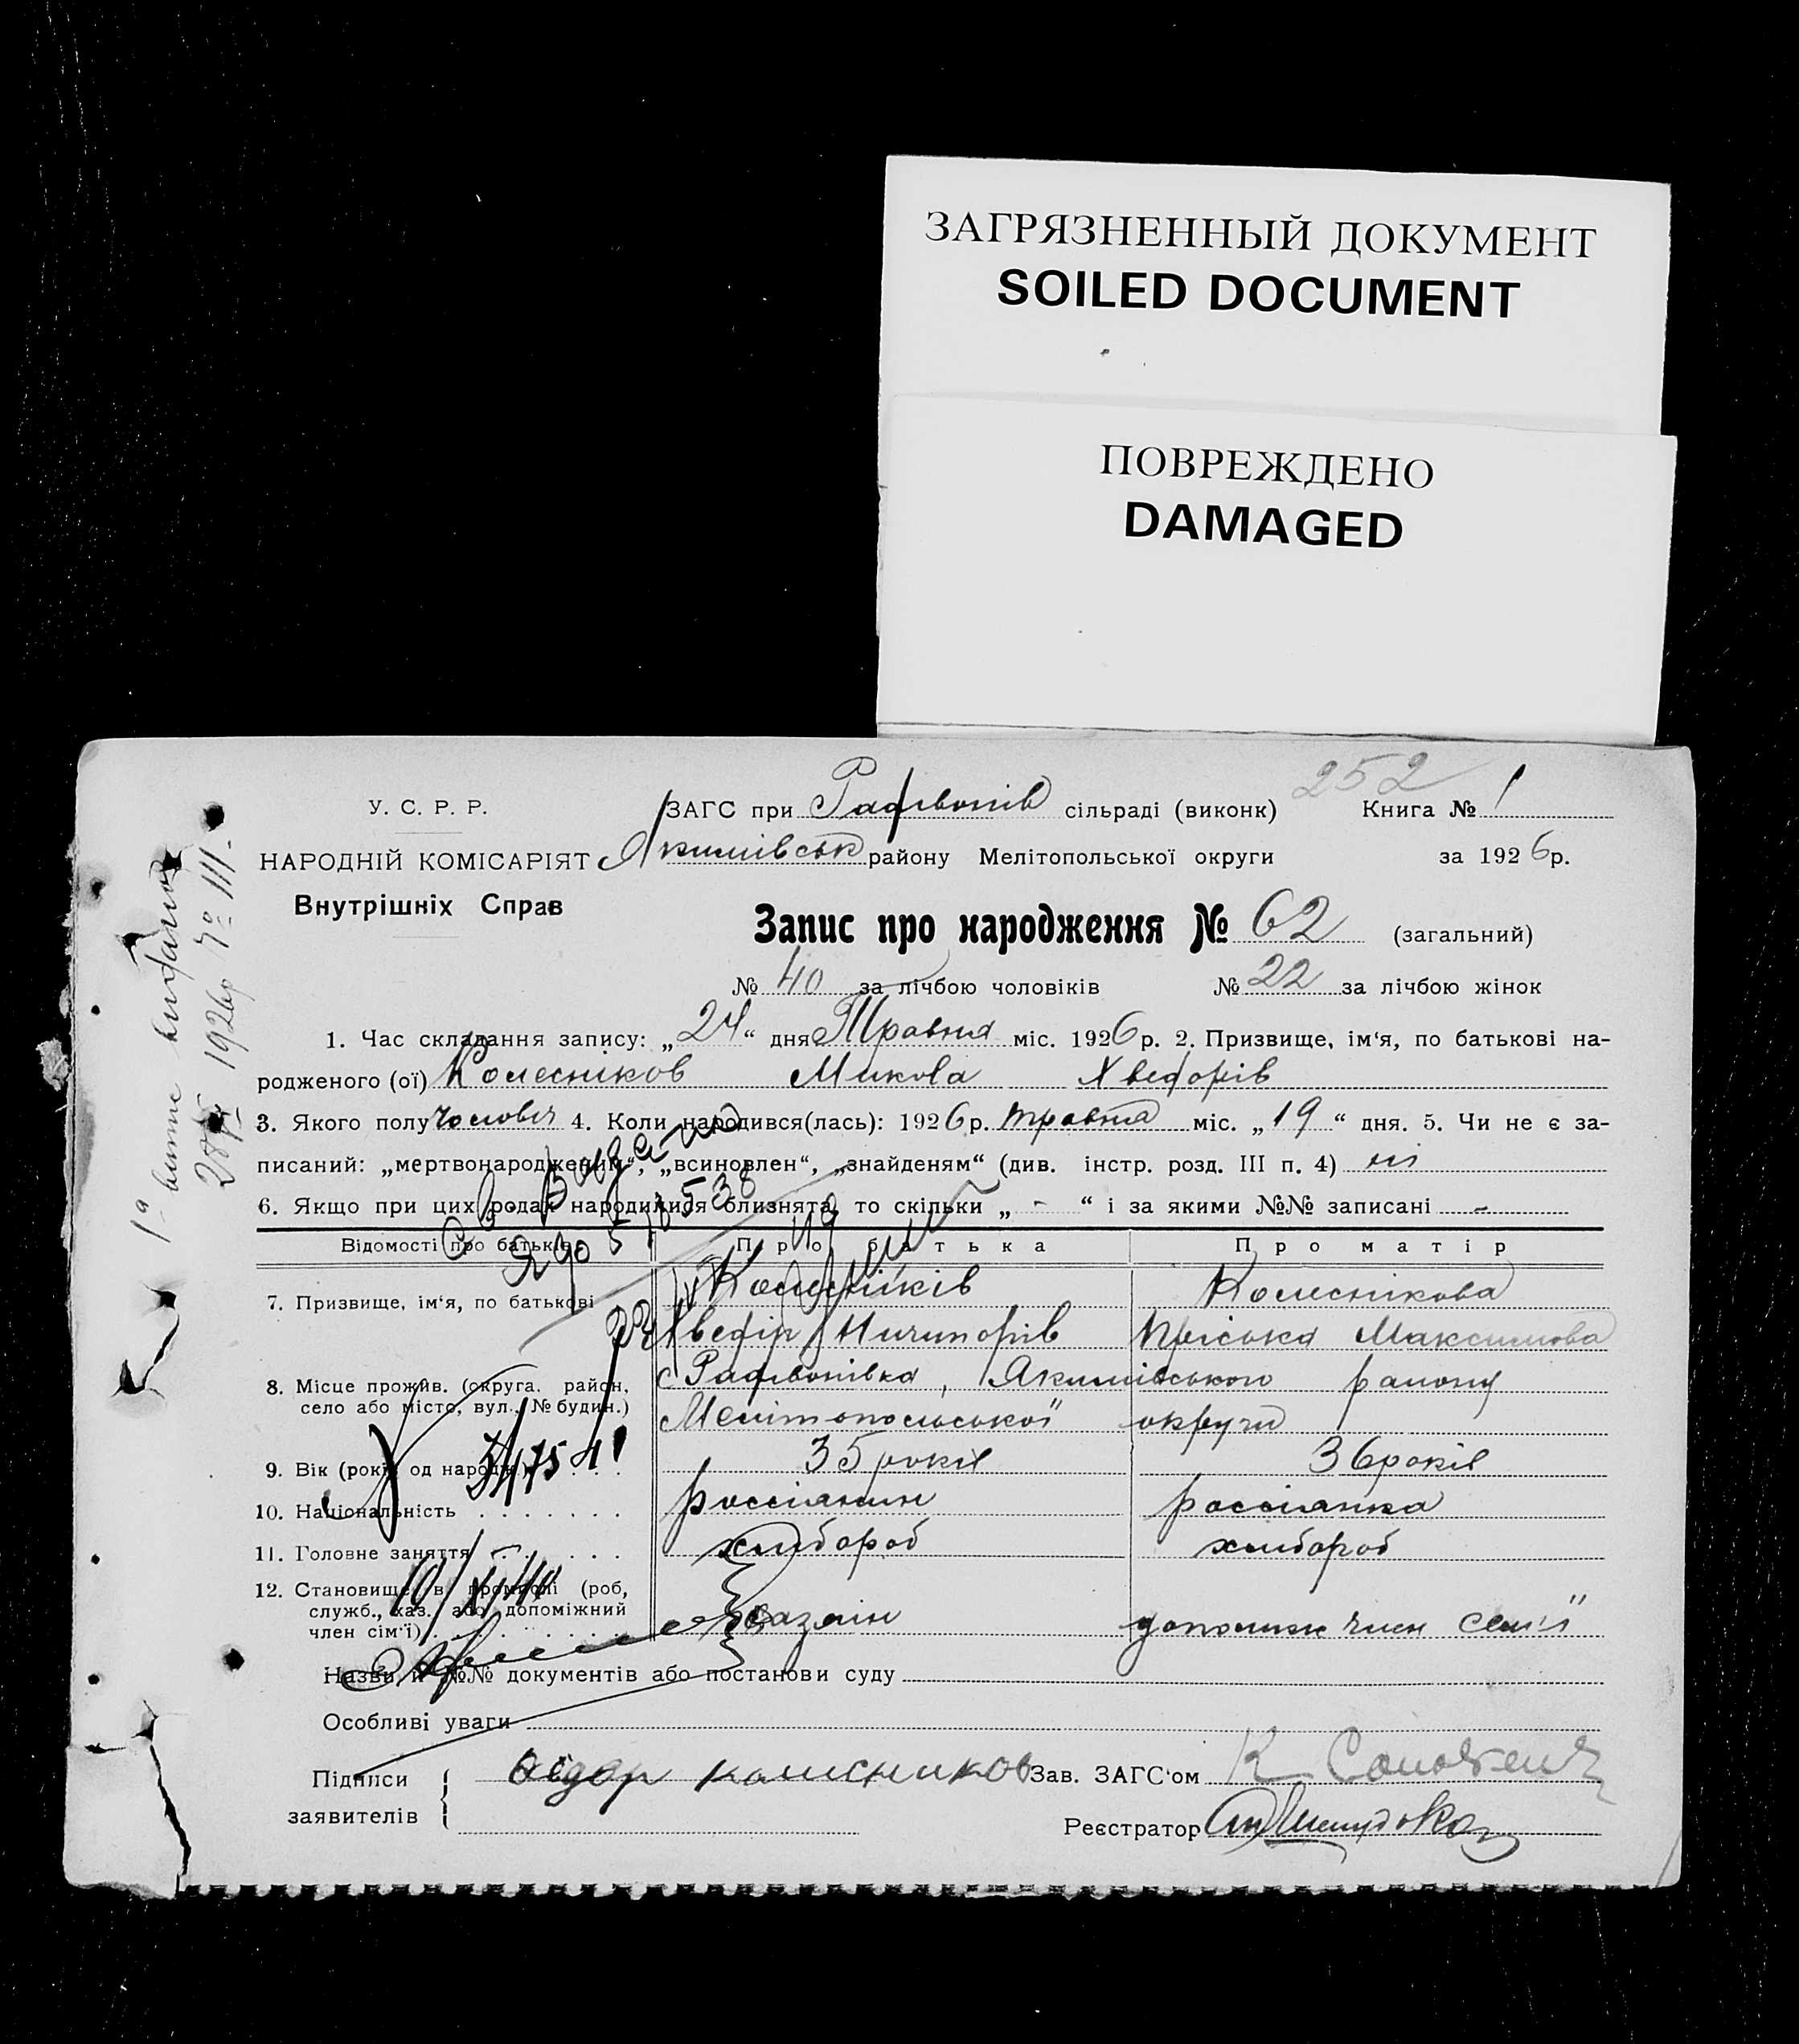 ЗАГРЯЗНЕННЫЙ ДОКУМЕНТ
SOILED DOCUMENT
ПОВРЕЖДЕНО
DAMAGED
252
У. С. Р. Р. ЗАГС при сільраді (виконк) Книга № 1
НАРОДНІЙ КОМІСАРІЯТ Якимівськ району Мелітопольської округи за 1926р.
Внутрішніх Справ
Запис про народження № 62 (загальний)
№ 40 за лічбою чоловіків № 22 за лічбою жінок
1. Час складання запису: „24“ дня Травня міс. 1926р. 2. Призвище, ім‘я, по батькові на-
родженого (ої) Колесніков Микола Хведорів
3. Якого полу чоловіч 4. Коли народився(лась): 1926р. травня міс. „19“ дня. 5. Чи не є за-
писаний: „мертвонароджений“, „всиновлен“, „знайденям“ (див. інстр. розд. III п. 4) ні
6. Якщо при цих родах народилися близнята, то скільки „ - “ і за якими №№ записані -
Відомості про батьків Про батька Про матір
7. Призвище, ім‘я, по батькові Колесніків Колеснікова
Хведір Ничипорів Пріська Максимова
8. Місце прожив. (округа, район, Якимівського району
село або місто, вул., № будин.) Мелітопольської округи
9. Вік (років од народж.) 35 років 36 років
10. Національність россіянин россіянка
11. Головне заняття хлібороб хлібороб
12. Становище в промислі (роб,
служб., хаз. або допоміжний
член сім‘ї) хазяін допоміж член семї
Назви й №№ документів або постанови суду
Особливі уваги
Підписи
заявителів
Зав. ЗАГС‘ом
Реєстратор